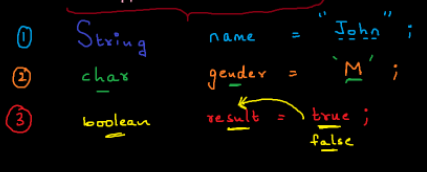 ① String name = "John" ;
② char gender = 'M' ;
③ boolean result = true ;
false